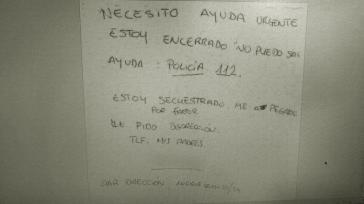 NECESITO AYUDA URGENTE
ESTOY ENCERRADO NO PUEDO SALIR
AYUDA : POLICÍA 112.
ESTOY SECUESTRADO. ME PEGARON
POR FAVOR
LE PIDO DISCRECIÓN.
TLF. MIS PADRES.
DIRECCIÓN